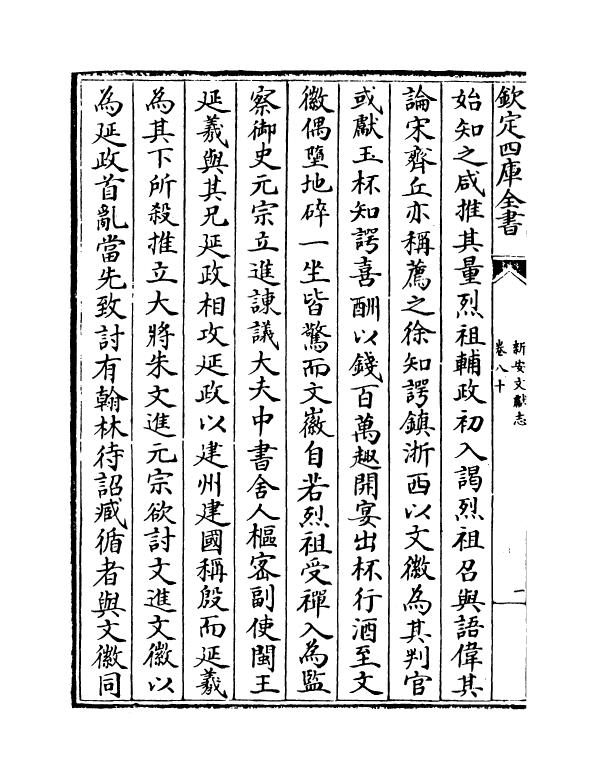 欽定四庫全書
新安文獻志
卷八十
二
始知之咸推其量烈祖輔政初入謁烈祖召與語偉其
論宋齊丘亦稱薦之徐知諤鎮浙西以文徽為其判官
或獻玉杯知諤喜酬以錢百萬趣開宴出杯行酒至文
徽偶墮地碎一坐皆驚而文徽自若烈祖受禪入為監
察御史元宗立進諫議大夫中書舍人樞密副使閩王
延羲與其兄延政相攻延政以建州建國稱殷而延羲
為其下所殺推立大將朱文進元宗欲討文進文徽以
為延政首亂當先致討有翰林待詔臧循者與文徽同